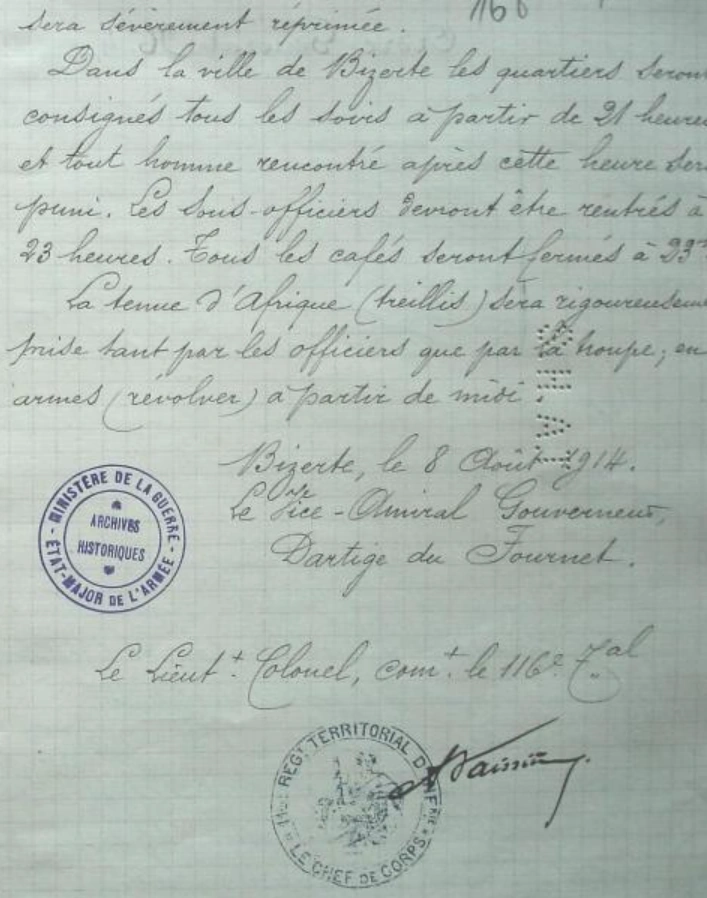 sera sévèrement réprimée.
Dans la ville de Bizerte les quartiers seron
consignés tous les soirs à partir de 21 heures
et tout homme rencontré après cette heure ser
puni. Les Sous-officiers devront être rentrés à
23 heures. Tous les cafés seront fermés à 23
La tenue d'Afrique (treillis) sera rigoureusem
prise tant par les officiers que par la troupe; en
armes (révolver) à partir de midi.
SHAT
Bizerte, le 8 Août 1914.
Le Vice-Amiral Gouverneur,
Dartige du Fournet.
MINISTÈRE DE LA GUERRE
ARCHIVES
HISTORIQUES
ÉTAT-MAJOR DE L'ARMÉE
Le Lieut.t Colonel, com.t le 116e T.al
RÉG.T TERRITORIAL D'INF.RIE
LE CHEF DE CORPS